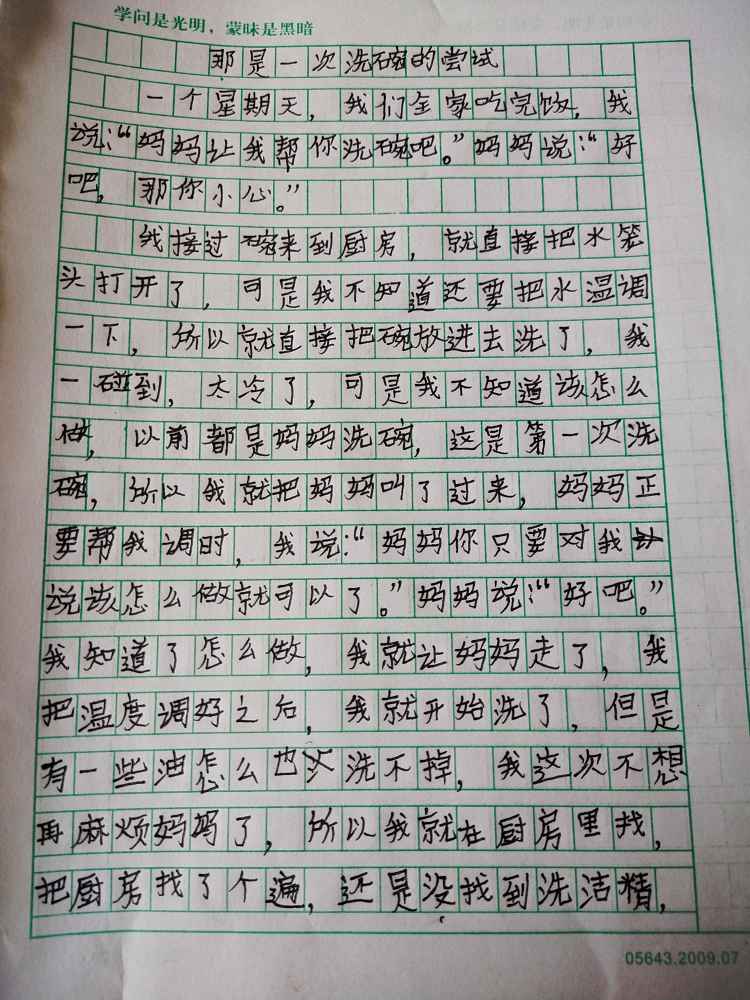 学问是光明，蒙昧是黑暗
那是一次洗碗的尝试
一个星期天，我们全家吃完饭，我
说：“妈妈让我帮你洗碗吧。”妈妈说：“好
吧，那你小心。”
我接过碗来到厨房，就直接把水笼
头打开了，可是我不知道还要把水温调
一下，所以就直接把碗放进去洗了，我
一碰到，太冷了，可是我不知道该怎么
做，以前都是妈妈洗碗，这是第一次洗
碗，所以我就把妈妈叫了过来，妈妈正
要帮我调时，我说：“妈妈你只要对我
说该怎么做就可以了。”妈妈说：“好吧。”
我知道了怎么做，我就让妈妈走了，我
把温度调好之后，我就开始洗了，但是
有一些油怎么也洗不掉，我这次不想
再麻烦妈妈了，所以我就在厨房里找，
把厨房找了个遍，还是没找到洗洁精，
05643.2009.07